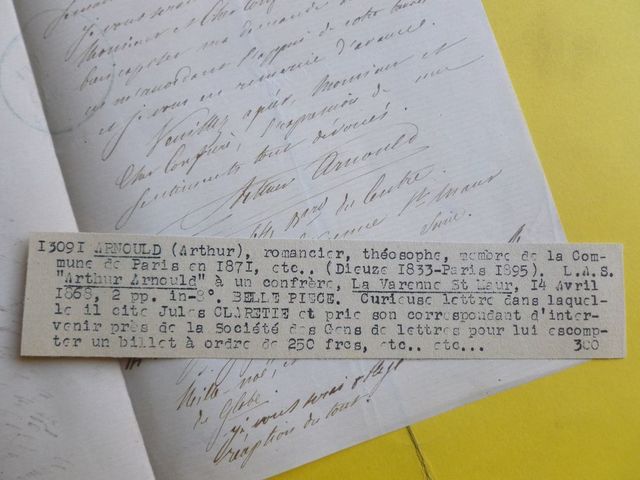 je vous serai
Monsieur et Cher Con
bien appuyer ma demande
en m'accordant l'appui de votre
et je vous en remercie d'avance.
Veuillez agréer, Monsieur et
Cher Confrère, l'expression de
sentiments tout dévoués.
Arthur Arnould
du Centre
St Maur
Seine.
I309I ARNOULD (Arthur), romancier, théosophe, membre de la Com-
mune de Paris en I87I, etc.. (Dieuze I833-Paris I895). L.A.S.
"Arthur Arnould" à un confrère, La Varenne St Maur, I4 Avril
I868, 2 pp. in-8°. BELLE PIECE. Curieuse lettre dans laquel-
le il cite Jules CLARETIE et prie son correspondant d'inter-
venir près de la Société des Gens de lettres pour lui escomp-
ter un billet à ordre de 250 frcs, etc.. etc... 300
du Globe.
je vous serai
réception du tout.